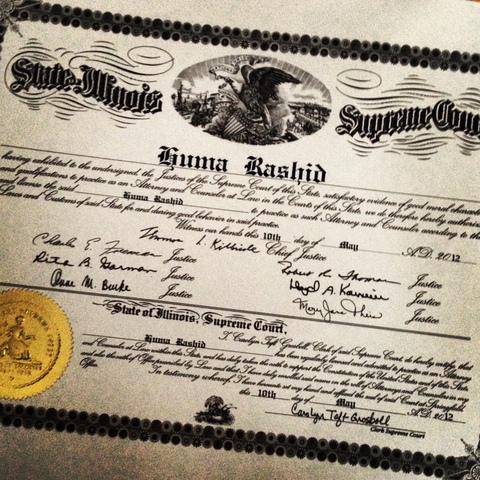 State of Illinois
Supreme Cour
Huma Rashid
having exhibited to the undersigned, the Justices of the Supreme Court of this State, satisfactory evidence of good moral characte
and qualifications to practice as an Attorney and Counselor at Law in the Courts of this State, we do therefore hereby authorize
and license the said Huma Rashid to practice as such Attorney and Counselor according to the
Laws and Customs of said State for and during good behavior in said practice.
Witness our hands this 10th day of May A.D. 2012
Thomas L. Kilbride Chief Justice
Charles E. Freeman Justice
Robert R. Thomas Justice
Rita B. Garman Justice
Lloyd A. Karmeier Justice
Anne M. Burke Justice
Mary Jane Theis Justice
State of Illinois, Supreme Court,
I Carolyn Taft Grosboll, Clerk of said Supreme Court, do hereby certify that
Huma Rashid has been regularly licensed and admitted to practice as an Attorney
and Counselor at Law within this State and has duly taken the oath to support the Constitution of the United States and of this State
Office.
In testimony whereof, I have hereunto set my hand and affixed the seal of said Court at Springfield
this 10th day of May A.D. 2012
Carolyn Taft Grosboll
Clerk Supreme Court